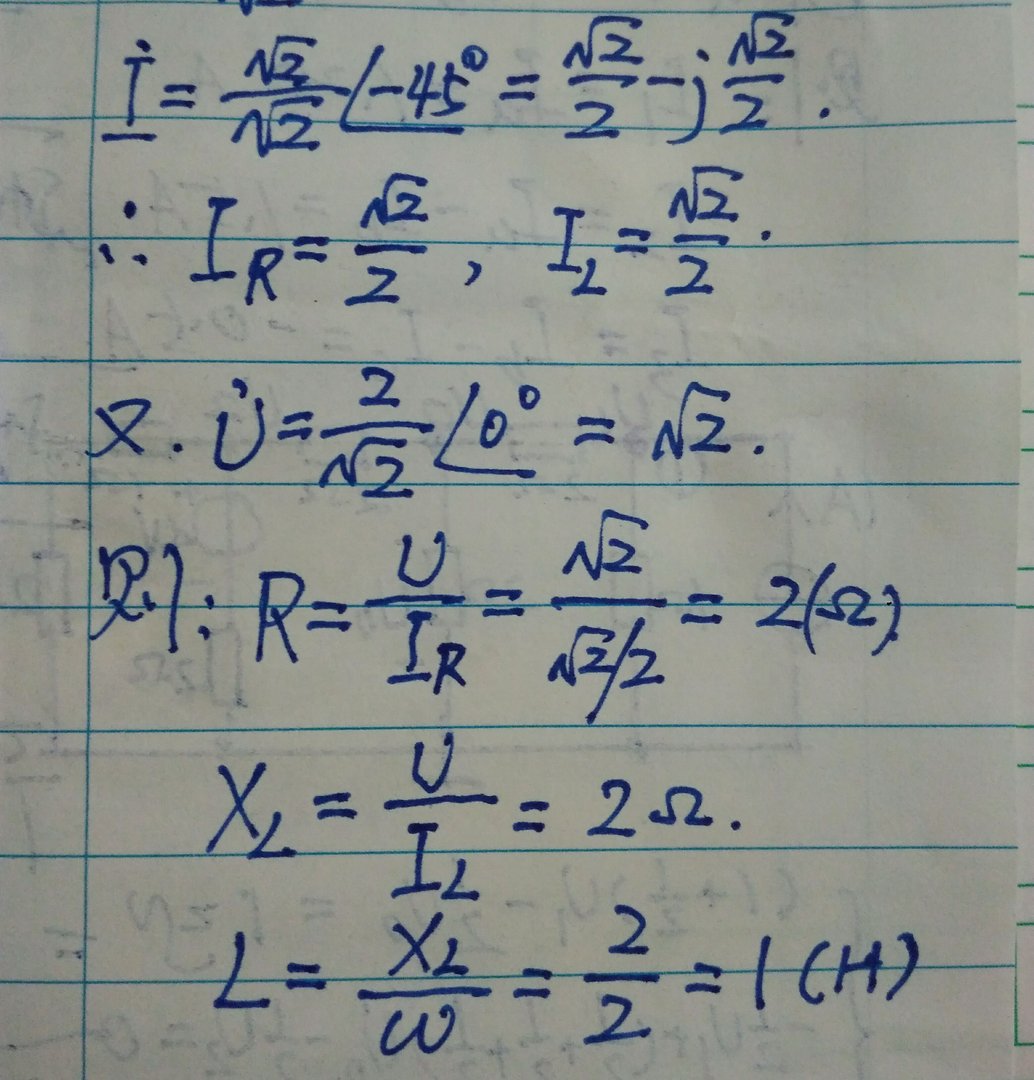 İ = √2/√2 ∠-45° = √2/2 - j √2/2 .
∴ I_R = √2/2 , I_L = √2/2 .
又. U̇ = 2/√2 ∠0° = √2 .
则: R = U/I_R = √2/(√2/2) = 2(Ω)
X_L = U/I_L = 2Ω.
L = X_L/ω = 2/2 = 1(H)